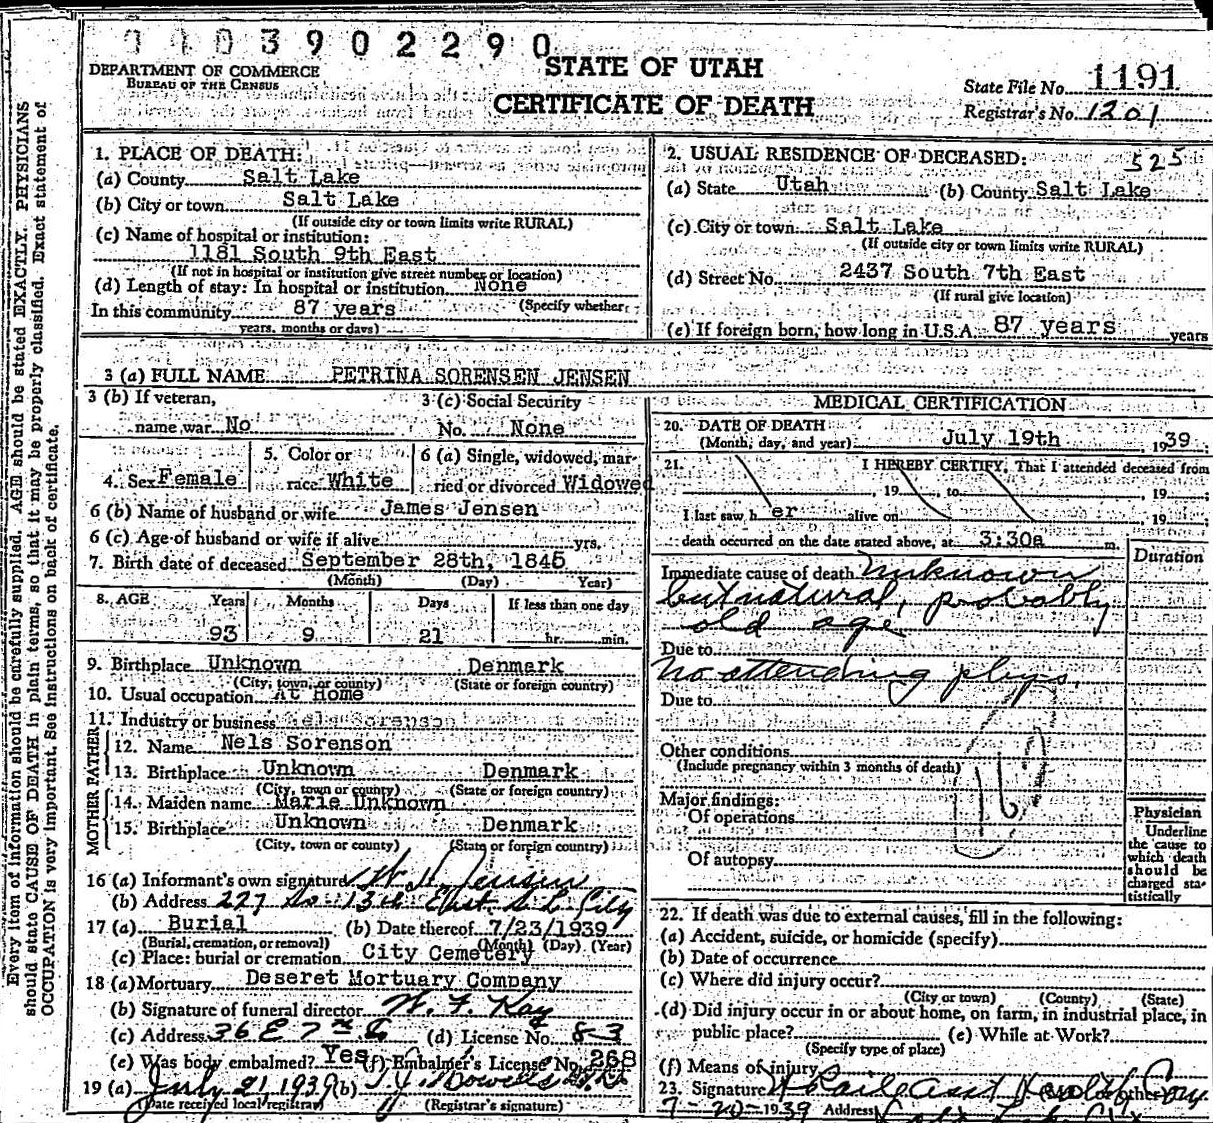 1 1 0 3 9 0 2 2 9 0
DEPARTMENT OF COMMERCE
BUREAU OF THE CENSUS
STATE OF UTAH
CERTIFICATE OF DEATH
State File No. 1191
Registrar's No. 1201
Every item of information should be carefully supplied. AGE should be stated EXACTLY. PHYSICIANS
should state CAUSE OF DEATH in plain terms, so that it may be properly classified. Exact statement of
OCCUPATION is very important. See instructions on back of certificate.
1. PLACE OF DEATH:
(a) County Salt Lake
(b) City or town Salt Lake
(If outside city or town limits write RURAL)
(c) Name of hospital or institution:
1181 South 9th East
(If not in hospital or institution give street number or location)
(d) Length of stay: In hospital or institution None
In this community 87 years (Specify whether
years, months or days)
2. USUAL RESIDENCE OF DECEASED: 525
(a) State Utah (b) County Salt Lake
(c) City or town Salt Lake
(If outside city or town limits write RURAL)
(d) Street No. 2437 South 7th East
(If rural give location)
(e) If foreign born, how long in U.S.A. 87 years years
3 (a) FULL NAME PETRINA SORENSEN JENSEN
3 (b) If veteran, 3 (c) Social Security
name war No No. None
4. Sex Female 5. Color or race White 6 (a) Single, widowed, married or divorced Widowed
6 (b) Name of husband or wife James Jensen
6 (c) Age of husband or wife if alive yrs.
7. Birth date of deceased September 28th, 1845
(Month) (Day) Year)
8. AGE Years Months Days If less than one day
93 9 21 hr. min.
9. Birthplace Unknown Denmark
(City, town, or county) (State or foreign country)
10. Usual occupation At Home
11. Industry or business Nels Sorenson
FATHER
12. Name Nels Sorenson
13. Birthplace Unknown Denmark
(City, town or county) (State or foreign country)
MOTHER
14. Maiden name Marie Unknown
15. Birthplace Unknown Denmark
(City, town or county) (State or foreign country)
16 (a) Informant's own signature Jensen
(b) Address 227 So 13th East S. L. City
17 (a) Burial (b) Date thereof 7/23/1939
(Burial, cremation, or removal) (Month) (Day) (Year)
(c) Place: burial or cremation City Cemetery
18 (a) Mortuary Deseret Mortuary Company
(b) Signature of funeral director W. F. Kay
(c) Address 36 E 7th (d) License No. 83
(e) Was body embalmed? Yes (f) Embalmer's License No. 268
19 (a) July 21, 1939 (b)
(Date received local registrar) (Registrar's signature)
MEDICAL CERTIFICATION
20. DATE OF DEATH
(Month, day, and year) July 19th , 1939
21. I HEREBY CERTIFY, That I attended deceased from
, 19 , to , 19 ;
I last saw h er alive on , 19 ;
death occurred on the date stated above, at 3:30a m.
Duration
Immediate cause of death Unknown
but natural, probably
old age
Due to
No attending phys.
Due to
Other conditions
(Include pregnancy within 3 months of death)
Major findings:
Of operations
Of autopsy
Physician
Underline
the cause to
which death
should be
charged sta-
tistically
22. If death was due to external causes, fill in the following:
(a) Accident, suicide, or homicide (specify)
(b) Date of occurrence
(c) Where did injury occur?
(City or town) (County) (State)
(d) Did injury occur in or about home, on farm, in industrial place, in
public place? (e) While at Work?
(Specify type of place)
(f) Means of injury
23. Signature
7-20-1939 Address